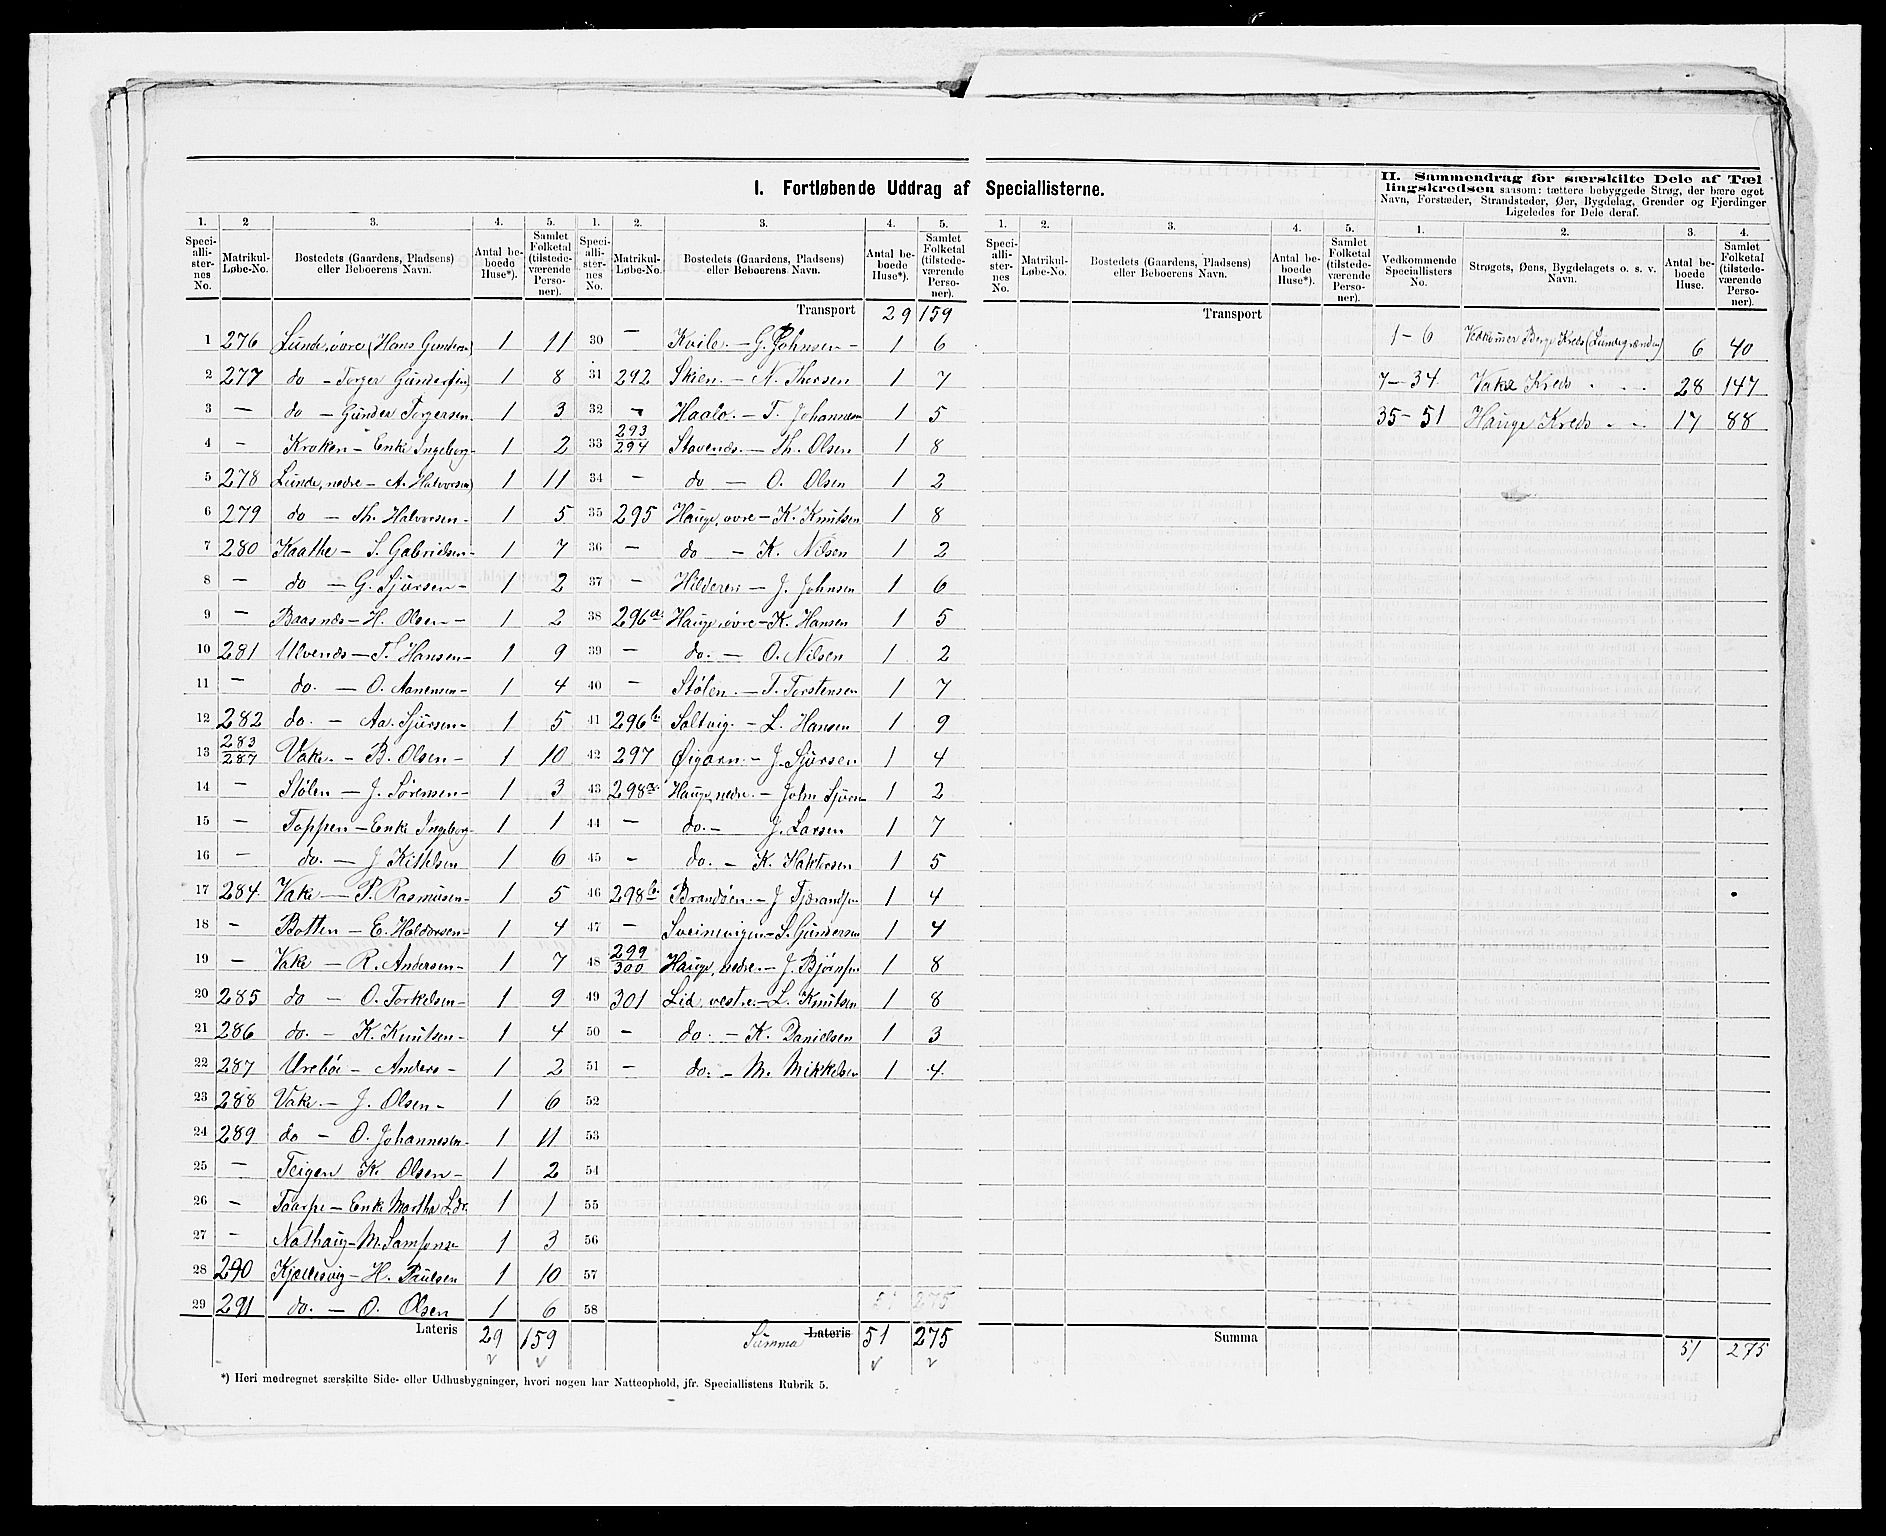 I. Fortløbende Uddrag af Speciallisterne.
1. 2 3. 4. 5.
Speciallisternes No. Matrikul-Løbe-No. Bostedets (Gaardens, Pladsens) eller Beboerens Navn. Antal beboede Huse*). Samlet Folketal (tilstedeværende Personer).
1 276 Lunde, øvre (Hans Gunders) 1 11
2 277 do - Torger Gundersen) 1 8
3 — do — Gunder Torgersen 1 3
4 - Kroken - Enke Ingeborg 1 2
5 278 Lunde, nedre - A. Halvorsen) 1 11
6 279 do - Th. Halvorsen - 1 5
7 280 Kaathe - S. Gabrielsen - 1 7
8 — do — G. Sjursen - 1 2
9 — Baasnæs - H. Olsen - 1 2
10 281 Ulvenæs - T. Hansen - 1 9
11 — do. — O. Aanensen - 1 4
12 282 do. - Aa. Sjursen - 1 5
13 283/287 Vake. - B. Olsen - 1 10
14 — Stølen - J. Sörensen - 1 3
15 — Toppen - Enke Ingeborg - 1 1
16 — do. — J. Kittelsen 1 6
17 284 Vake — P. Rasmusen - 1 5
18 - Botten - E. Haldorsen - 1 4
19 - Vake - R. Andersen - 1 7
20 285 do - O. Torkelsen - 1 9
21 286 do. - K. Knutsen - 1 4
22 287 Urebøe - Anders - 1 2
23 288 Vake. - J. Olsen - 1 6
24 289 do - O. Johannesen - 1 11
25 — Teigen K. Olsen - 1 2
26 - Taarpe - Enke Martha L.dr. 1 1
27 - Nathaug - M. Samsons. 1 3
28 290 Kjellesvig - H. Paulsen 1 10
29 291 do. — O. Olsen 1 6
Lateris 29 159
1. 2. 3. 4. 5.
Speciallisternes No. Matrikul-Løbe-No. Bostedets (Gaardens, Pladsens) eller Beboerens Navn. Antal beboede Huse*). Samlet Folketal (tilstedeværende Personer).
Transport 29 159
30 — Kvile. - G. Johnsen - 1 6
31 292 Skien. - N. Thersen 1 7
32 - Haalo. - T. Johannesen 1 5
33 293/294 Stavenæs. - Th. Olsen 1 8
34 — do — O. Olsen 1 2
35 295 Hauge, øvre - K. Knutsen 1 8
36 — do - K. Nilsen 1 2
37 — Hilderen - J. Johnsen 1 6
38 296a. Hauge, øvre - K. Hansen 1 5
39 — do. - O. Nilsen 1 2
40 — Stølen. - T. Torstensen 1 7
41 296b. Saltvig. - L. Hansen 1 9
42 297 Øigarn. - J. Sjursen 1 4
43 298a. Hauge, nedre. - John Sjursen 1 2
44 — do. - J. Larsen 1 7
45 - do. - K. Haktorsen 1 5
46 298b. Brandøen. - J. Tjerandsen 1 4
47 — Sveinevigen - S. Gundersen 1 4
48 299/300 Hauge, nedre. - J. Bjørnsen 1 8
49 301 Lid, vestre. - L. Knutsen 1 8
50 - do. - K. Danielsen 1 3
51 — do. - M. Mikkelsen 1 4.
52
53
54
55
56
57
58 51 275
Summa Lateris 51 275
1. 2. 3. 4. 5.
Speciallisternes No. Matrikul-Løbe-No. Bostedets (Gaardens, Pladsens) eller Beboerens Navn. Antal beboede Huse*). Samlet Folketal (tilstedeværende Personer).
Transport
Summa
II. Sammendrag for særskilte Dele af Tæl
lingskredsen saasom: tættere bebyggede Strøg, der bære eget
Navn, Forstæder, Strandsteder, Øer, Bygdelag, Grender og Fjerdinger
Ligeledes for Dele deraf.
1. 2. 3. 4.
Vedkommende Speciallisters No. Strøgets, Øens, Bygdelagets o. s. v. Navn. Antal beboede Huse. Samlet Folketal (tilstedeværende Personer).
1 - 6 Berge Kreds (Lundegrænden) 6 40
7 - 34 Vake Kreds . . . 28 147
35 - 51 Hauge Kreds . . 17 88
51 275
*) Heri medregnet særskilte Side- eller Udhusbygninger, hvori nogen har Natteophold, jfr. Speciallistens Rubrik 5.